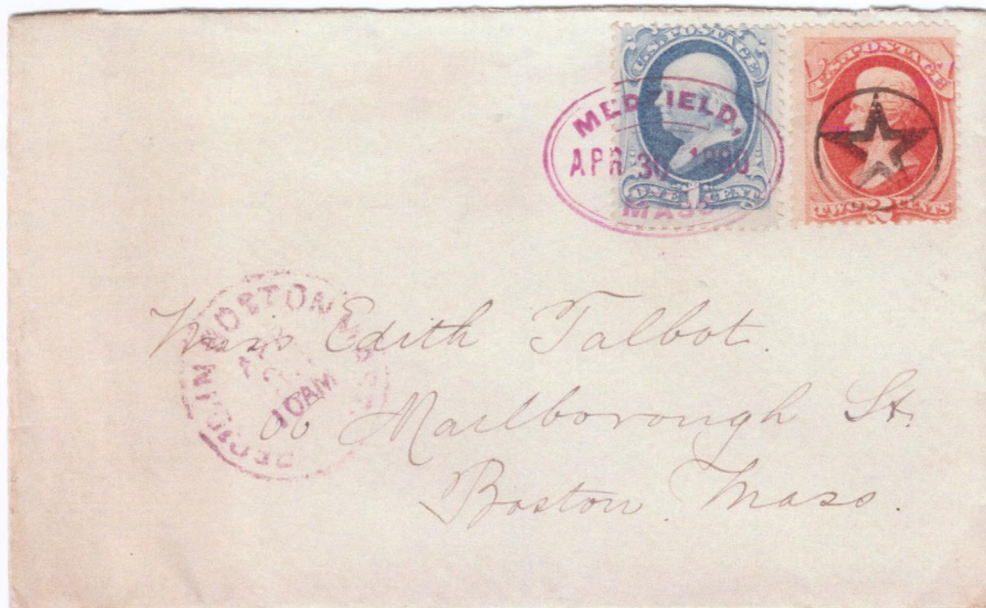 U.S. POSTAGE
ONE 1 CENT
U.S. POSTAGE
TWO 2 CENTS
MEDFIELD,
APR 30 1880
MASS
REC'D IN BOSTON
10AM
Miss Edith Talbot.
Marlborough St.
Boston. Mass.